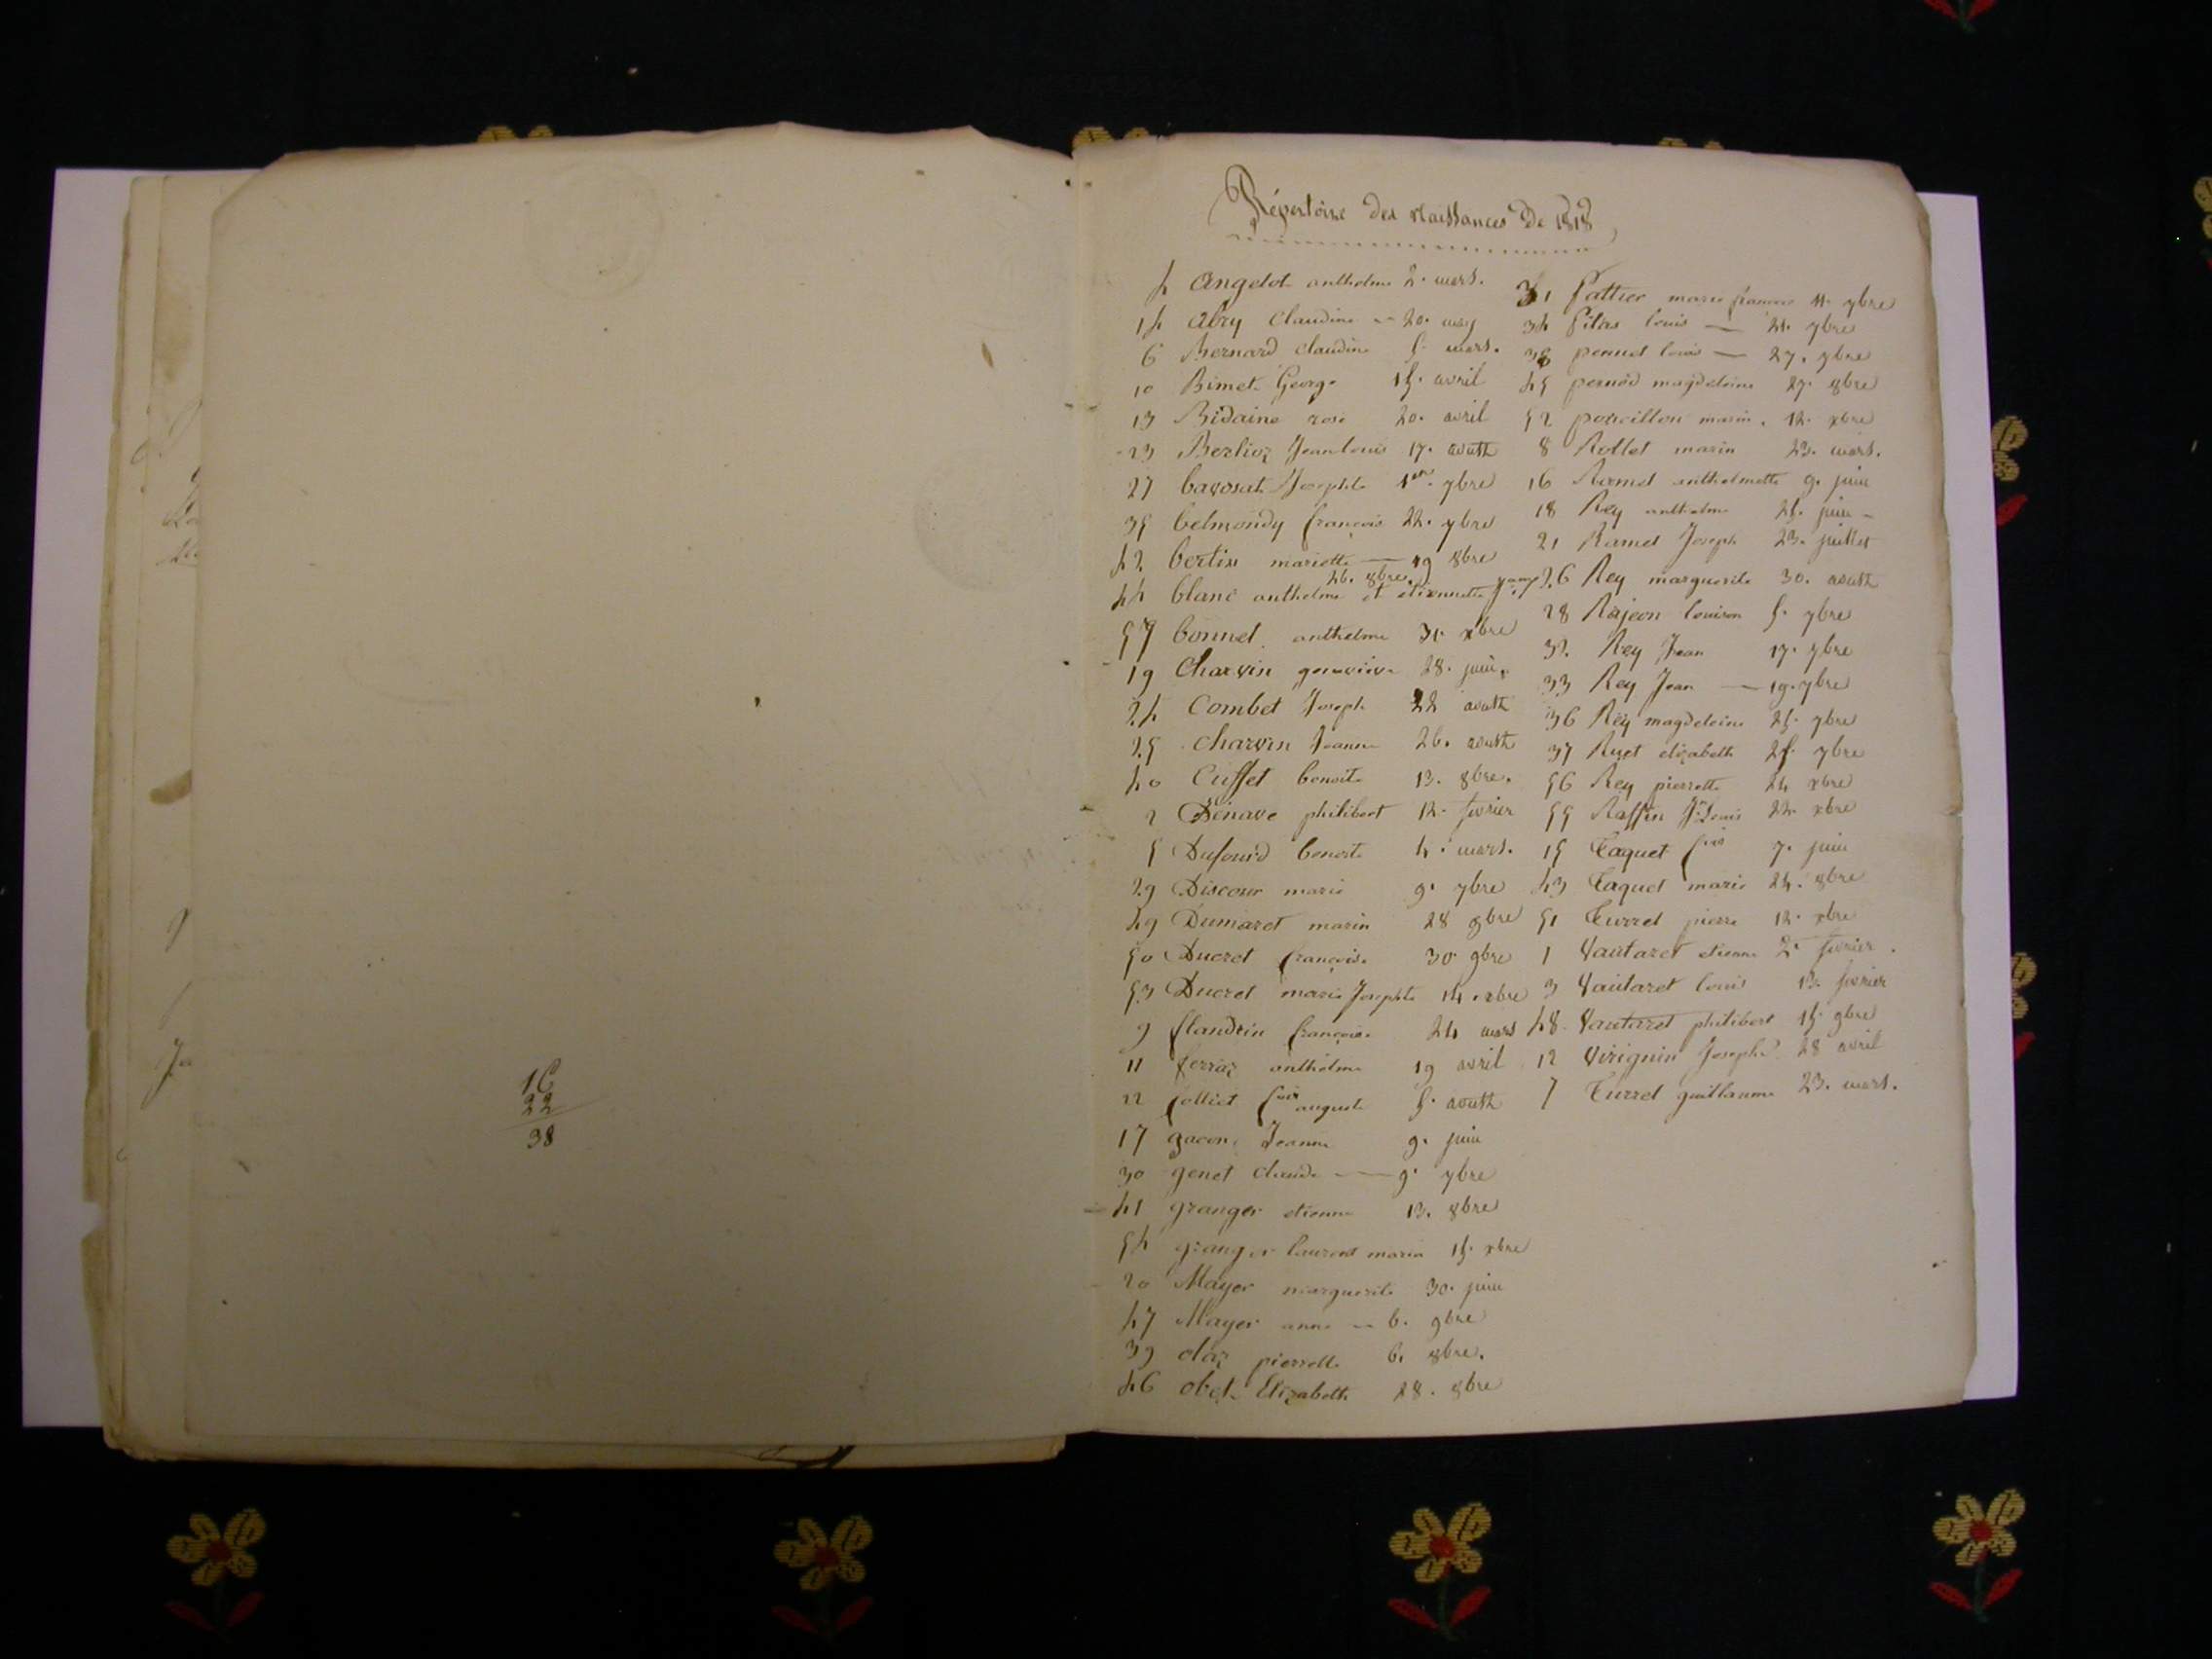 16
22
38
Répertoire des Naissances De 1818
4 Angelot anthelme 2. mars.
14 Abry Claudine 20. may
6 Bernard claudine 5. mars.
10 Bimet George 15. avril
13 Bidaine rose 20. avril
23 Berlioz Jean louis 17. aoust
27 bavosat Josephte 1er. 7bre
35 belmondy françois 22. 7bre
42 bertin mariette — 19 8bre
44 blanc anthelme et etiennette 26. 8bre.
57 bonnet anthelme 31. xbre
19 Charvin genevieve 28. juin
24 Combet Joseph 22 aoust
25 charvin Jeanne 26. aoust
40 Cuffet benoite 13. 8bre.
2 Dénave philibert 12. fevrier
5 Dufourd benoite 4. mars.
29 Discour marie 9. 7bre
49 Dumaret marin 28 9bre
50 Ducret françoise 30 9bre
53 Ducret marie Josephte 14. xbre
9 flandrin françoise 24 mars
11 ferraz anthelme 19 avril
22 folliet fois auguste 5. aoust
17 gacon Jeanne 9. juin
30 genet claude — 9. 7bre
41 granger etienne 13. 8bre
54 granger laurent marin 15. xbre
20 Mayer marguerite 30. juin
47 Mayer anne 6. 9bre
39 olaz pierrette 6. 8bre.
46 obet Elizabeth 28. 8bre
31 Pattier marie 11. 7bre
34 Pilas louis — 21. 7bre
38 pennet louis — 27. 7bre
45 pernod magdeleine 27. 8bre
52 porcillon marin. 12. xbre
8 Rollet marin 23. mars.
16 Ramel anthelmette 9. juin
18 Rey anthelme 25. juin
21 Ramel Joseph 23. juillet
26 Rey marguerite 30. aoust
28 Rajeon louison 5. 7bre
32. Rey Jean 17. 7bre
33 Rey Jean — 19. 7bre
36 Rey magdeleine 25. 7bre
37 Ruet elizabeth 25. 7bre
56 Rey pierrette 24 xbre
55 Raffin Jn Louis 22. xbre
15 Taquet fois 7. juin
43 Taquet marie 24. 8bre
51 Turrel pierre 12. xbre
1 Vautaret etienne 2. fevrier.
3 Vautaret louis 13. fevrier
48. Vautaret philibert 15. 9bre
12 Virignin Josephe 28 avril
7 Turrel guillaume 23. mars.